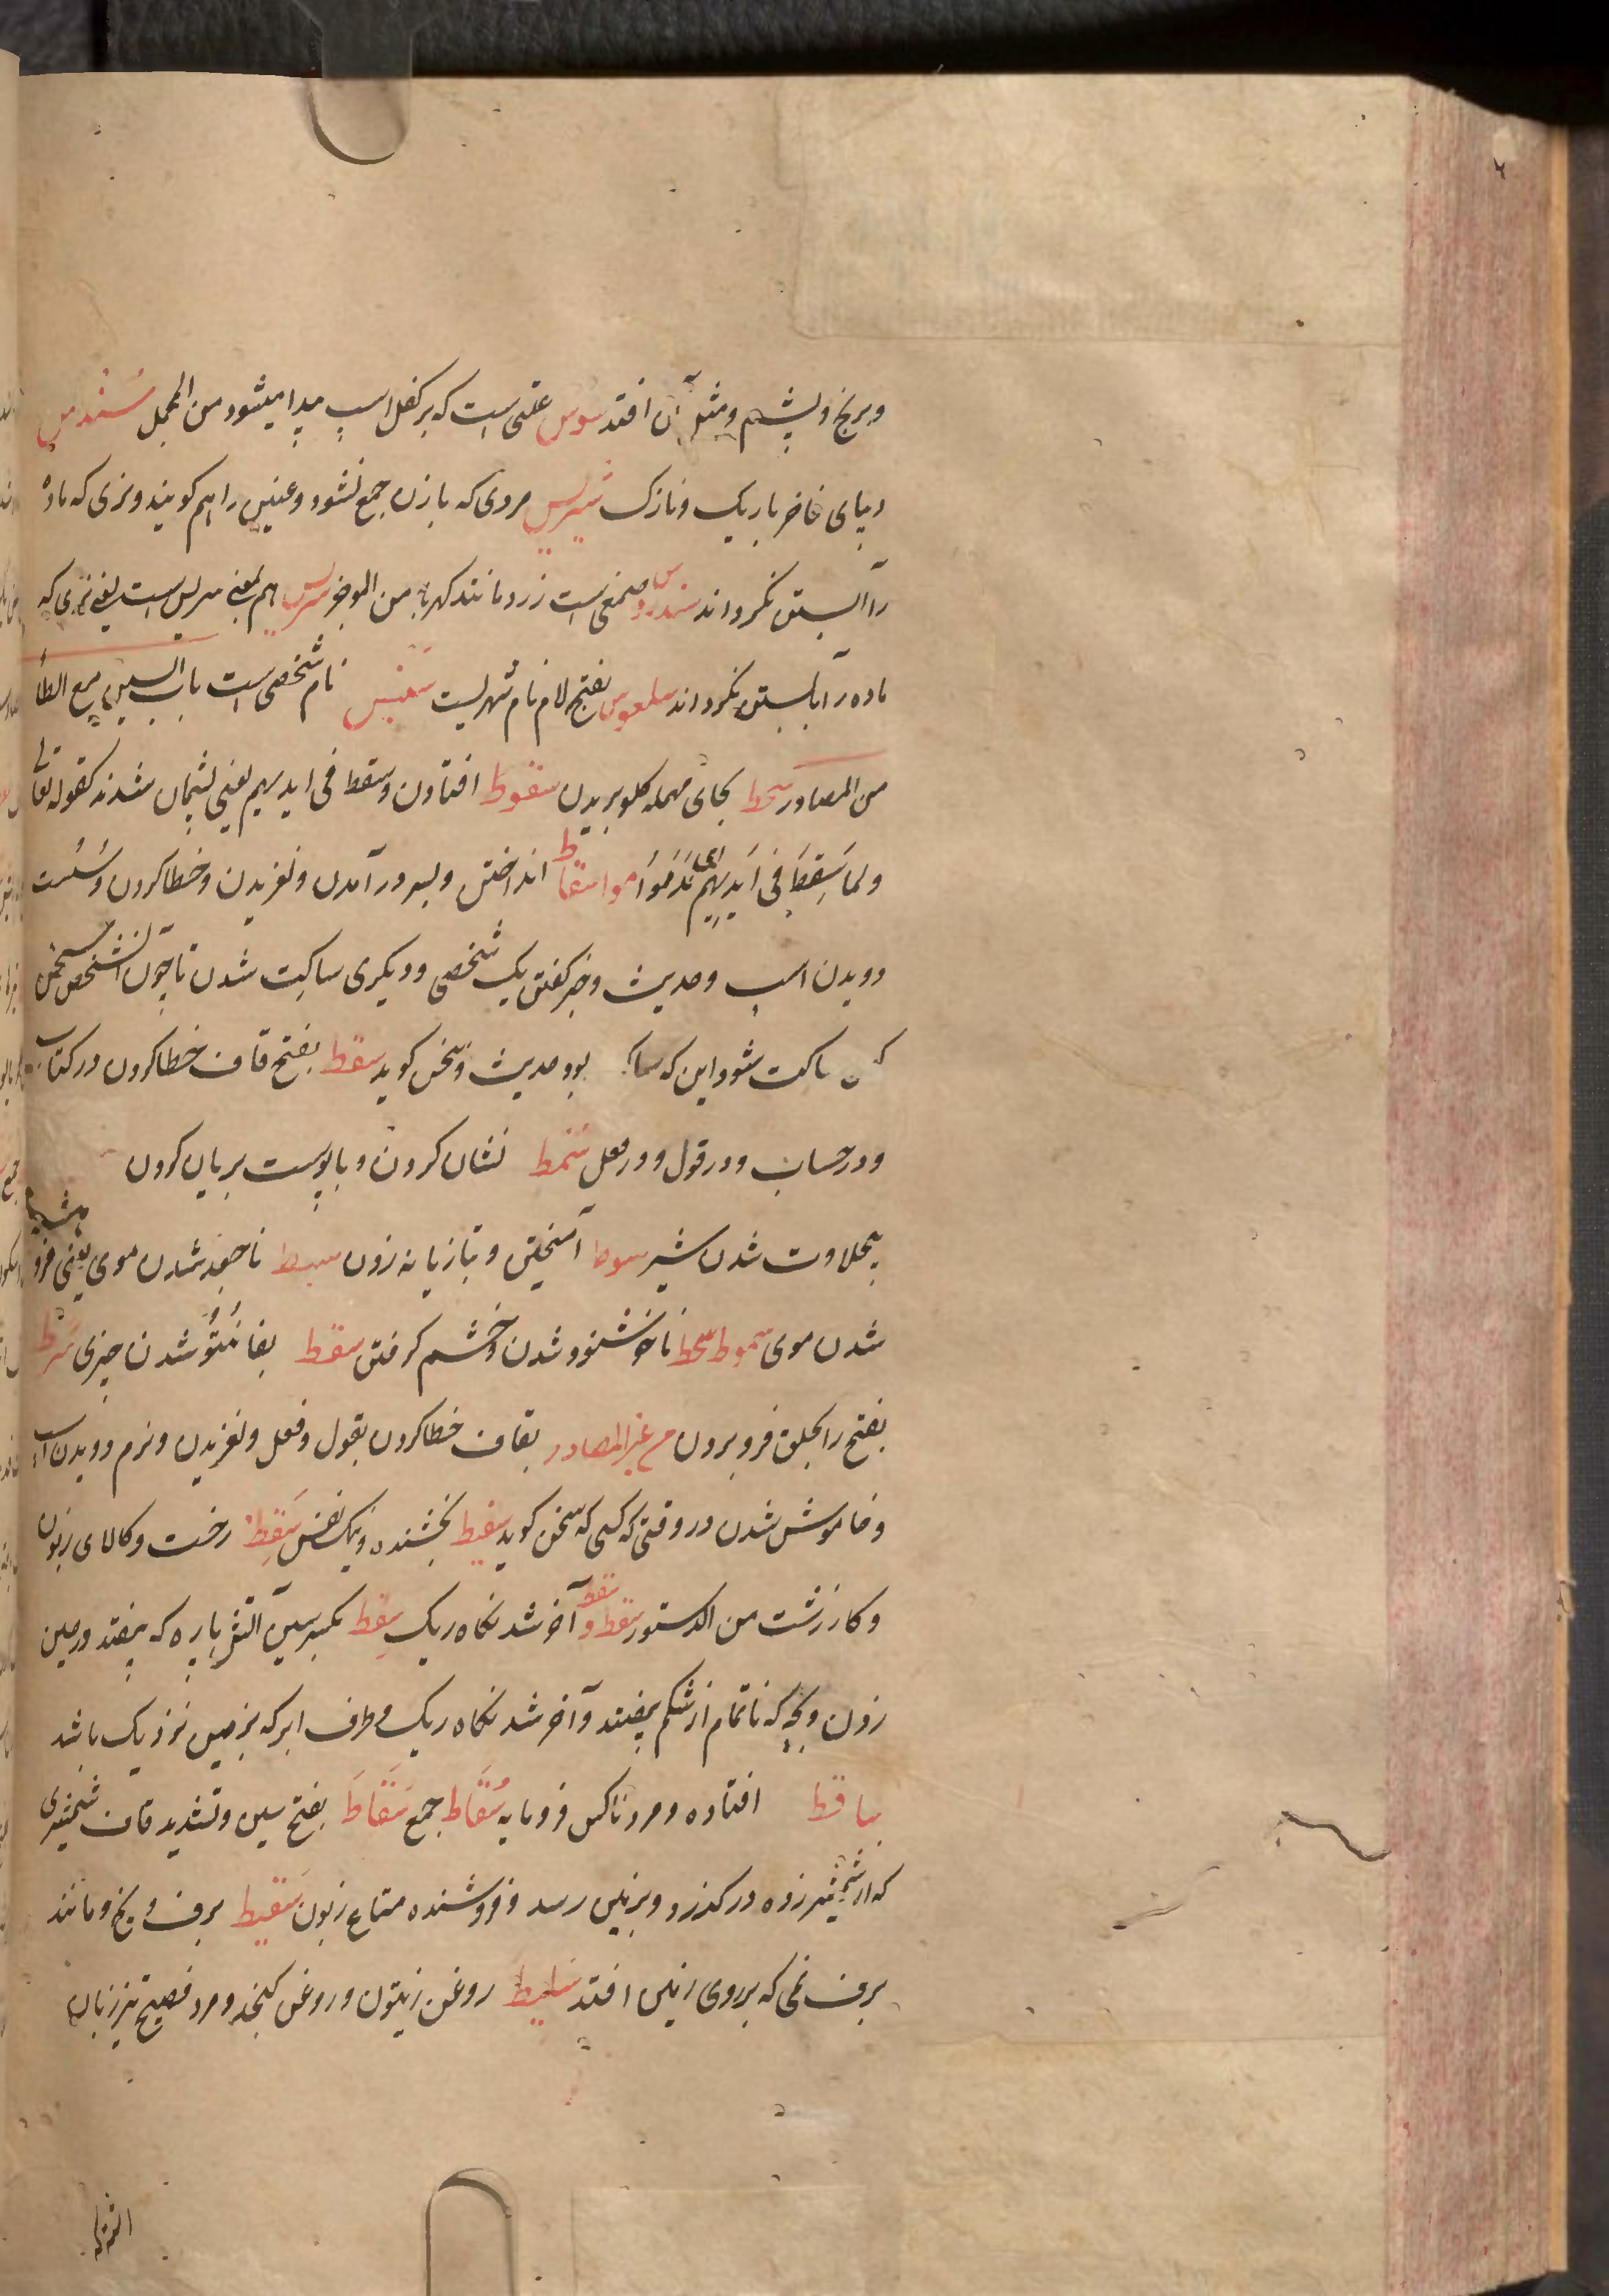 وبرنج وپشم ومثل آن افتد سوس علتی است که بر کفل اسپ پیدا میشود من المجمل سُنْدس
دیبای فاخر باریک ونازک سریس مردی که بازن جمع نشود وعنین را هم کویند ونری که ماده
را آبستن نکرداند سندروس صمغی است زرد مانند کهربا من الموجز سرس هم بمعنی سریس است یعنی نری که
ماده را آبستن نکرداند سلعوس بفتح لام نام شهریست نام شخصی است باب السین مع الطاء
من المصادر سحط بحای مهمله کلو بریدن سقوط افتادن وسقط فی ایدیهم یعنی پشیمان شدند کقوله تعالی
ولما سُقِطَ فی اَیْدیهِم ای نَدَموا اسقاط انداختن وبسر درآمدن ولغزیدن وخطا کردن وسُست
دویدن اسب وحدیث وخبر کفتن یک شخصی ودیکری ساکت شدن تا چون آنشخص سخن
ساکت شود این که بود حدیث وسخن کوید سقط بفتح قاف خطا کردن در کتاب
ودر حساب ودر قول ودر فعل سَمط نشان کردن وباپوست بریان کردن
بیحلاوت شدن شیر سوط آمیختن وبتازیانه زدن سبط ناجعد شدن موی یعنی فرو هشته
شدن موی سبوط سخط ناخوشنود شدن وخشم کرفتن سقط بفا شدن چیزی سَرط
بفتح را بحلق فرو بردن من غیر المصادر بقاف خطا کردن بقول وفعل ولغزیدن ونرم دویدن اسب
وخاموش شدن در وقتی که کسی که سخن کوید سفیط بخشنده ونیک نفس سَقط رخت وکالای زبون
وکار زشت من الدستور سقط و سقط آخر شد نکاه ریک سِقط بکسر سین آتش پاره که بیفتد در حین
زدن وبچه که ناتمام از شکم بیفتد وآخر شد نکاه ریک وطرف ابر که بزمین نزدیک باشد
ساقط افتاده ومرد ناکس فرومایه سُقّاط جمع سَقّاط بفتح سین وتشدید قاف شمشیری
که از شمشیر زده درکذرد وبزمین رسد وفروشنده متاع زبون سَقیط برف ویخ ومانند
برف نمی که بروی زمین افتد سَلیط روغن زیتون وروغن کنجد ومرد فصیح تیز زبان